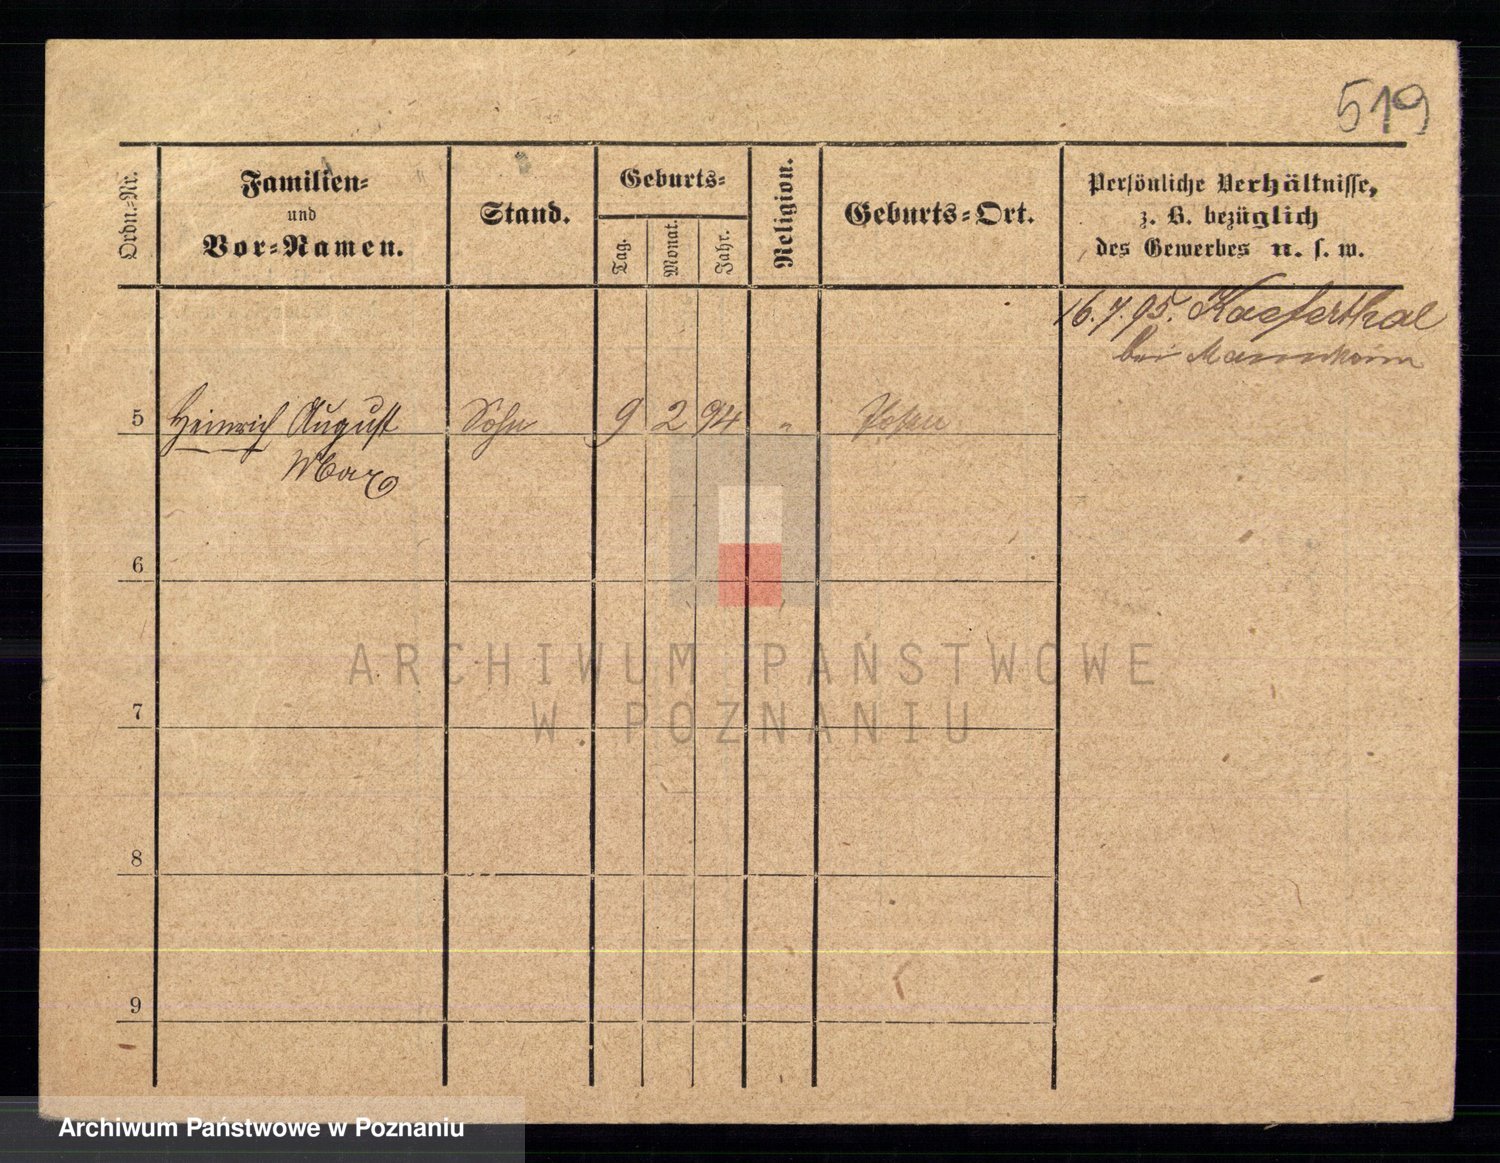 519
Ordn.-Nr.
Familien-
und
Vor-Namen.
Stand.
Geburts-
Tag.
Monat.
Jahr.
Religion.
Geburts-Ort.
Persönliche Verhältnisse,
z. B. bezüglich
des Gewerbes u. s. w.
16.7.95. Kaeferthal
bei Mannheim
5 Heinrich August Sohn 9 2 94 " Posen
Max
6
7
8
9
ARCHIWUM PAŃSTWOWE
W POZNANIU
Archiwum Państwowe w Poznaniu